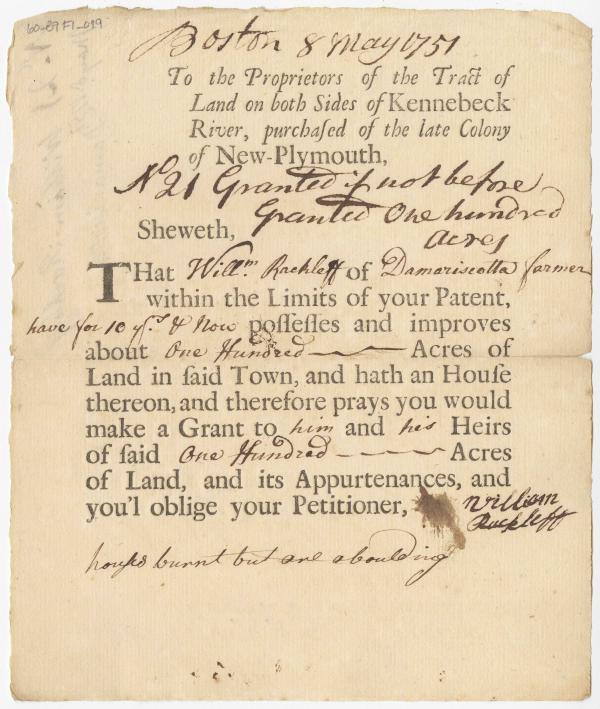 60-89 F1_019
Boston 8 May 1751
To the Proprietors of the Tract of
Land on both Sides of Kennebeck
River, purchaſed of the late Colony
of New-Plymouth,
No 21 Granted if not before
Granted One hundred
acres
Sheweth,
THat Willm. Rackleff of Damariscotta farmer
within the Limits of your Patent,
have for 10 yrs. & Now poſſeſſes and improves
about One Hundred Acres of
Land in ſaid Town, and hath an Houſe
thereon, and therefore prays you would
make a Grant to him and his Heirs
of ſaid One Hundred Acres
of Land, and its Appurtenances, and
you'l oblige your Petitioner,
William
Rackleff
burnt but are aboulding